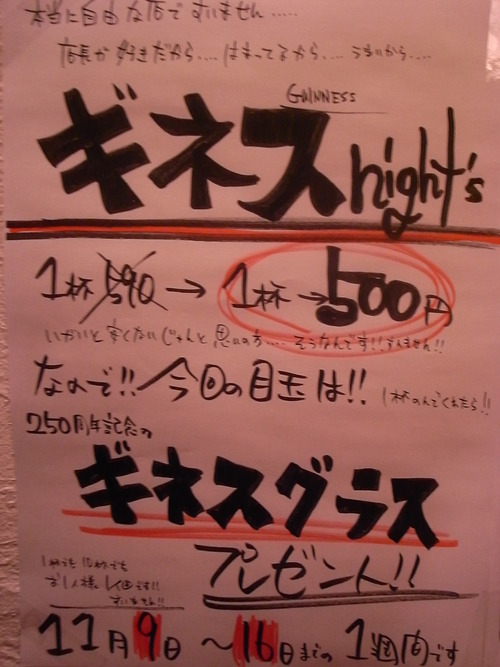 本当に自由な店ですいません.....
店長が好きだから.... はまってるから.... うまいから....
GUINNESS
ギネスnight's
1杯 590 → 1杯→500円
いがいと安くないじゃんと思いの方.... そうなんです!!すみません!!
なので!! 今回の目玉は!! 1杯のんでくれたら!!
250周年記念の
ギネスグラス
1杯でも10杯でも
お1人様1個です!! プレゼント!!
すいません!!
11月9日 〜16日までの 1週間です